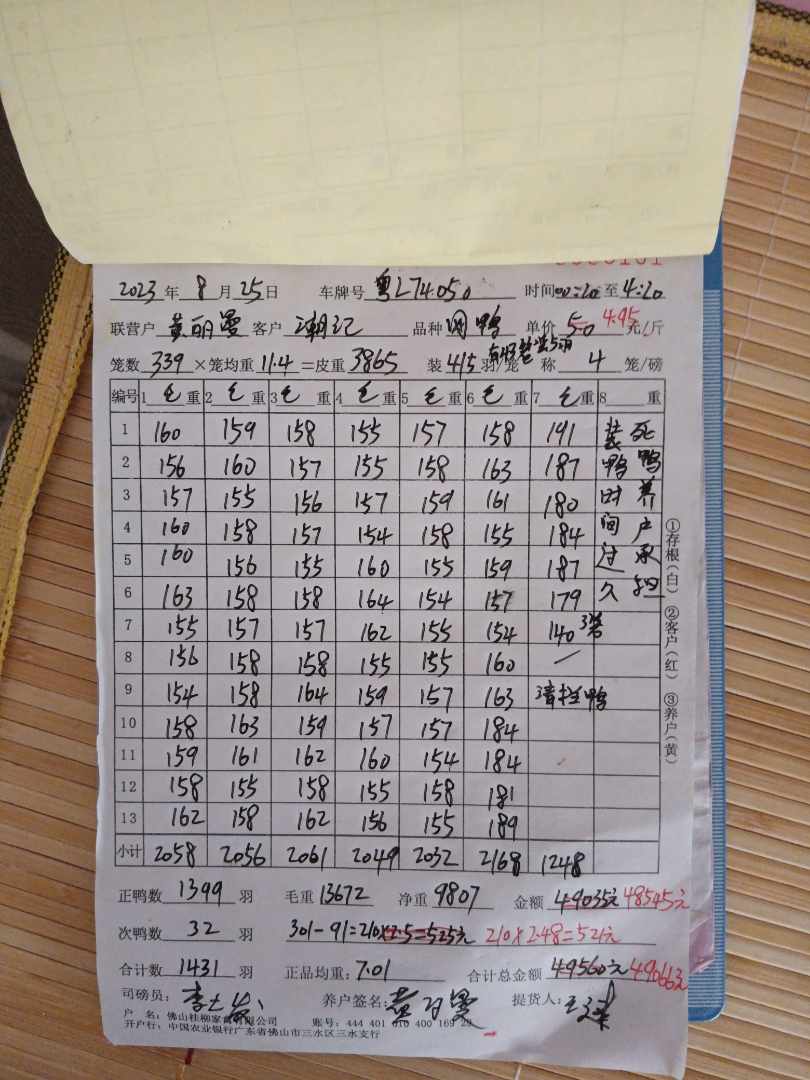 2023年8月25日 车牌号 粤L74050 时间00:20至4:20
联营户 黄丽曼 客户 潮记 品种 闽鸭 单价 5.0 4.95 元/斤
笼数 339 ×笼均重 11.4 =皮重 3865 装 4/5 羽/笼 称 4 笼/磅
编号 1 毛重 2 毛重 3 毛重 4 毛重 5 毛重 6 毛重 7 毛重 8 重
1 160 159 158 155 157 158 191 装死
2 156 160 157 155 158 163 187 鸭鸭
3 157 155 156 157 159 161 180 时养
4 160 158 157 154 158 155 184 间户
5 160 156 155 160 155 159 187 过承
6 163 158 158 164 154 157 179 久担
7 155 157 157 162 155 154 140 3笼
8 156 158 158 155 155 160 /
9 154 158 164 159 157 163 清拦鸭
10 158 163 159 157 157 184
11 159 161 162 160 154 184
12 158 155 158 155 158 181
13 162 158 162 156 155 189
小计 2058 2056 2061 2049 2032 2168 1248
①存根(白) ②客户(红) ③养户(黄)
正鸭数 1399 羽 毛重 13672 净重 9807 金额 49035元 48545元
次鸭数 32 羽 301-91=210×2.5=525元 210×2.48=521元
合计数 1431 羽 正品均重: 7.01 合计总金额 49560元 49066元
司磅员: 养户签名: 黄丽曼 提货人:
户 名: 佛山桂柳家禽有限公司 账号: 444 401 010 400 169 29
开户行: 中国农业银行广东省佛山市三水区三水支行